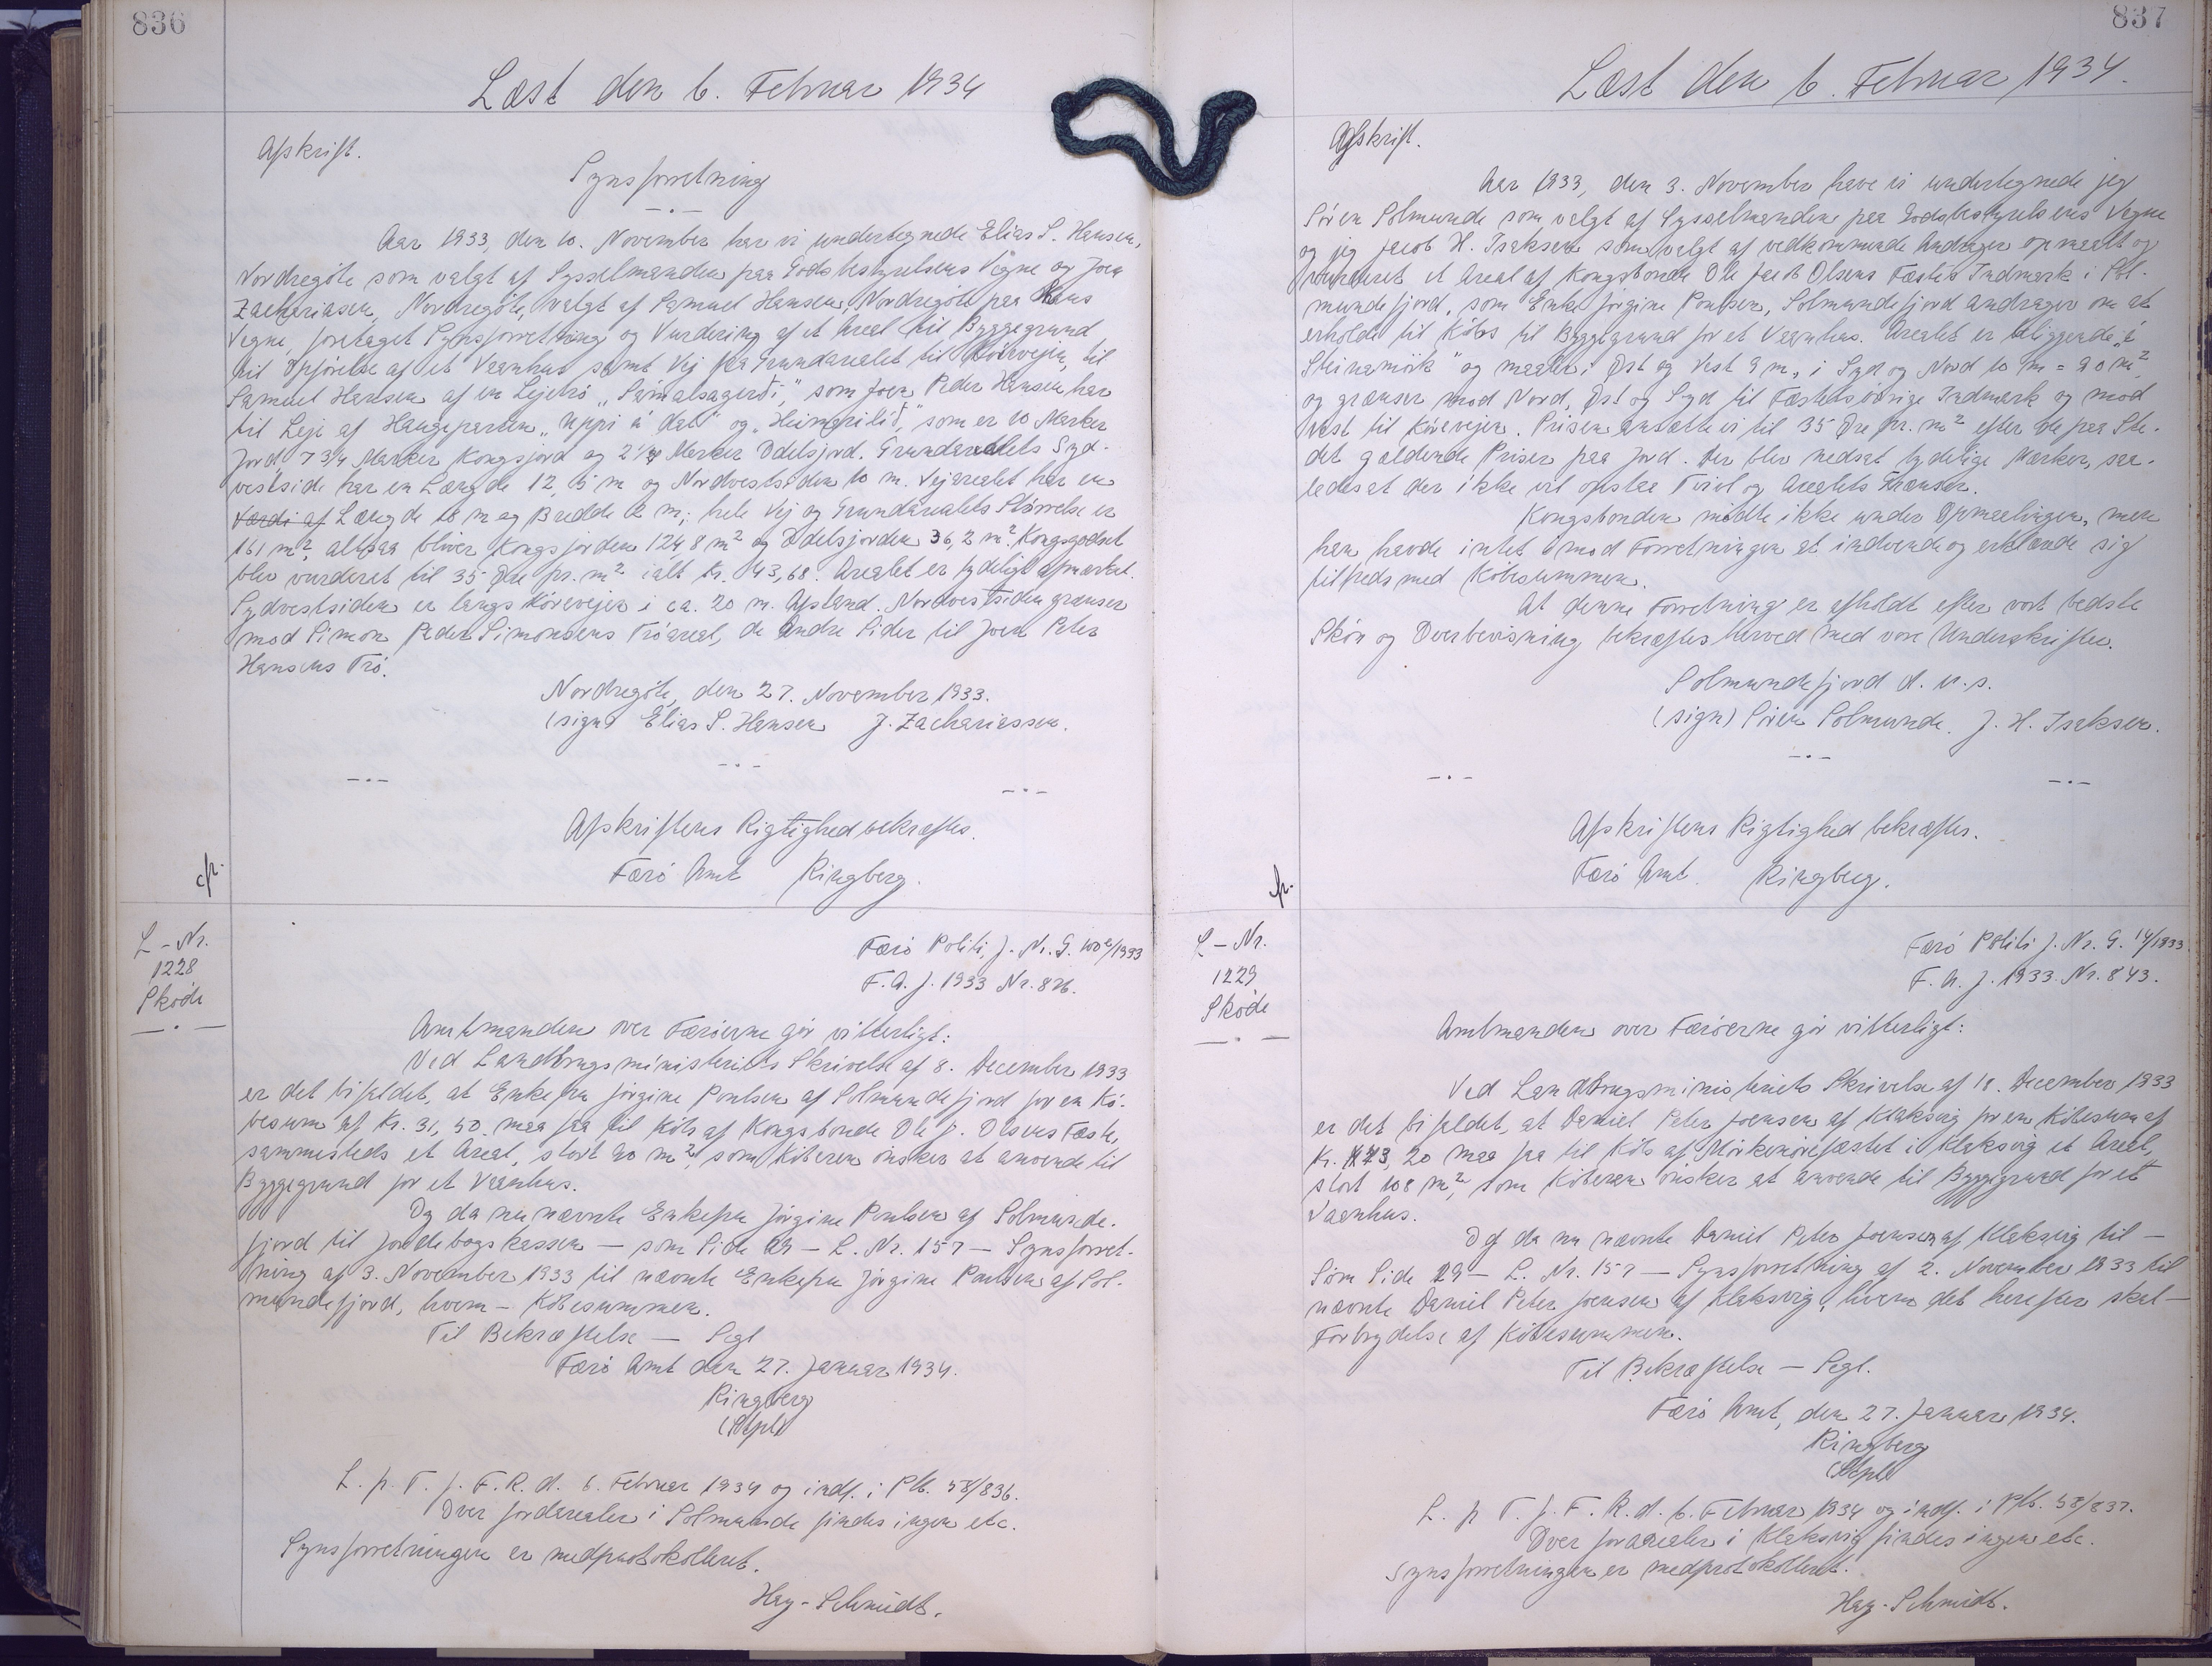 836
Læst den 6. Februar 1934
Afskrift.
Synsforretning
Aar 1933, den 10. November har vi undertegnede Elias S. Hansen,
Nordregöte som valgt af Sysselmanden paa Godsbestyrelsens Vegne og Joen
Zachariasen, Nordregöte, valgt af Samuel Hansen, Nordregöte paa Hans
Vegne, foretaget Synsforretning og Vurdering af et Areal til Byggegrund
til Opförelse af et Vaanhus samt Vej fra Grundarealet til Körevejen, til
Samuel Hansen af en Lejetrö „Sámalsagerði," som Joen Peder Hansen har
til Leje af Haugeparten „Uppi á dal" og „Heimarilið," som er 10 Marker
Jord, 7 3/4 Marker Kongsjord og 2 1/4 Marker Odelsjord. Grundarealets Syd-
vestside har en Længde 12,5 m og Nordvestsiden 10 m. Vejarealet har en
Værdi af Længde 18 m og Bredde 2 m; hele Vej og Grundarealets Størrelse er
161 m², altsaa bliver Kongsjorden 124,8 m² og Odelsjorden 36,2 m². Kongsgodset
blev vurderet til 35 Øre pr. m² ialt Kr. 43,68. Arealet er tydeligt afmærket.
Sydvestsiden er langs Körevejen i ca. 20 m. Afstand. Nordvestsiden grænser
mod Simon Peder Simonsens Tröareal, de andre Sider til Joen Peter
Hansens Trö.
Nordregöte, den 27. November 1933.
(sign) Elias S. Hansen J. Zachariassen.
Afskriftens Rigtighed bekræftes.
Færö Amt Ringberg.
cfr.
L-Nr.
1228
Sköde
Færö Politi, J. Nr. G. 100/1933
F. A. J. 1933 Nr. 826.
Amtmanden over Færöerne gör vitterligt:
Ved Landbrugsministeriets Skrivelse af 8. December 1933
er det bifaldet, at Enkefru Jörgine Poulsen af Solmundefjord for en Kö-
besum af Kr. 31,50 maa faa til Köb af Kongsbonde Ole J. Olsens Fæste,
sammesteds et Areal, stort 90 m², som Köberen önsker at anvende til
Byggegrund for et Vaanhus.
Og da nu nævnte Enkefru Jörgine Poulsen af Solmunde-
fjord til Jordebogskassen — som Side 29 — L. Nr. 157 — Synsforret-
ning af 3. November 1933 til nævnte Enkefru Jörgine Poulsen af Sol-
mundefjord, hvem — Köbesummen.
Til Bekræftelse — Segl
Færö Amt den 27. Januar 1934.
Ringberg
(Stpl)
L. p. T. f. F. R. d. 6. Februar 1934 og indf. i Ptk. 58/836.
Over Jordarealer i Solmunde findes ingen etc.
Synsforretningen er medprotokolleret.
Hay-Schmidt.
837
Læst den 6. Februar 1934.
Afskrift.
Aar 1933, den 3. November have vi undertegnede jeg
Sören Solmunde som valgt af Sysselmanden paa Godsbestyrelsens Vegne
og jeg Jacob H. Isaksen som valgt af vedkommende Andrager opmaalt og
vurderet et Areal af Kongsbonde Ole Jacob Olsens Fæstes Indmark i Sol-
mundefjord, som Enke Jörgine Poulsen, Solmundefjord andrager om at
erholde til Köbs til Byggegrund for et Vaanhus. Arealet er beliggende „á
Steinamörk" og maaler i Øst og Vest 9 m., i Syd og Nord 10 m = 90 m²,
og grænser mod Nord, Øst og Syd til Fæstets övrige Indmark og mod
Vest til Körevejen. Prisen ansætte vi til 35 Øre pr. m² efter de paa Ste-
det gældende Priser paa Jord. Der blev nedsat tydelige Mærker, saa-
ledes at der ikke vil opstaa Tvivl og Arealets Grænser.
Kongsbonden mödte ikke under Opmaalingen, men
han havde intet imod Forretningen at indvende og erklærede sig
tilfreds med Köbesummen.
At denne Forretning er afholdt efter vort bedste
Skön og Overbevisning bekræftes herved med vore Underskrifter.
Solmundefjord d. u. s.
(sign) Sören Solmunde. J. H. Isaksen.
Afskriftens Rigtighed bekræftes.
Færö Amt. Ringberg.
cfr.
L-Nr.
1229
Sköde
Færö Politi J. Nr. G. 14/1933
F. A. J. 1933. Nr. 843.
Amtmanden over Færöerne gör vitterligt:
Ved Landbrugsministeriets Skrivelse af 18. December 1933
er det bifaldet, at Daniel Peter Joensen af Klaksvig for en Köbesum af
Kr. 43,20 maa faa til Köb af Mörkenörefæstet i Klaksvig et Areal,
stort 108 m², som Köberen önsker at anvende til Byggegrund for et
Vaanhus.
Og da nu nævnte Daniel Peter Joensen af Klaksvig til —
Som Side 29 — L. Nr. 157 — Synsforretning af 2. November 1933 til
nævnte Daniel Peter Joensen af Klaksvig, hvem det herefter skal —
Forbrydelse af Köbesummen.
Til Bekræftelse — Segl.
Færö Amt, den 27. Januar 1934.
Ringberg
(Stpl)
L. p T. f. F. R. d. 6. Februar 1934 og indf. i Ptk. 58/837.
Over Jordarealer i Klaksvig findes ingen etc.
Synsforretningen er medprotokolleret.
Hay-Schmidt.